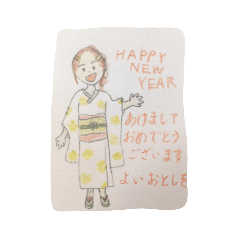 HAPPY
NEW
YEAR
あけまして
おめでとう
ございます
よいおとしを